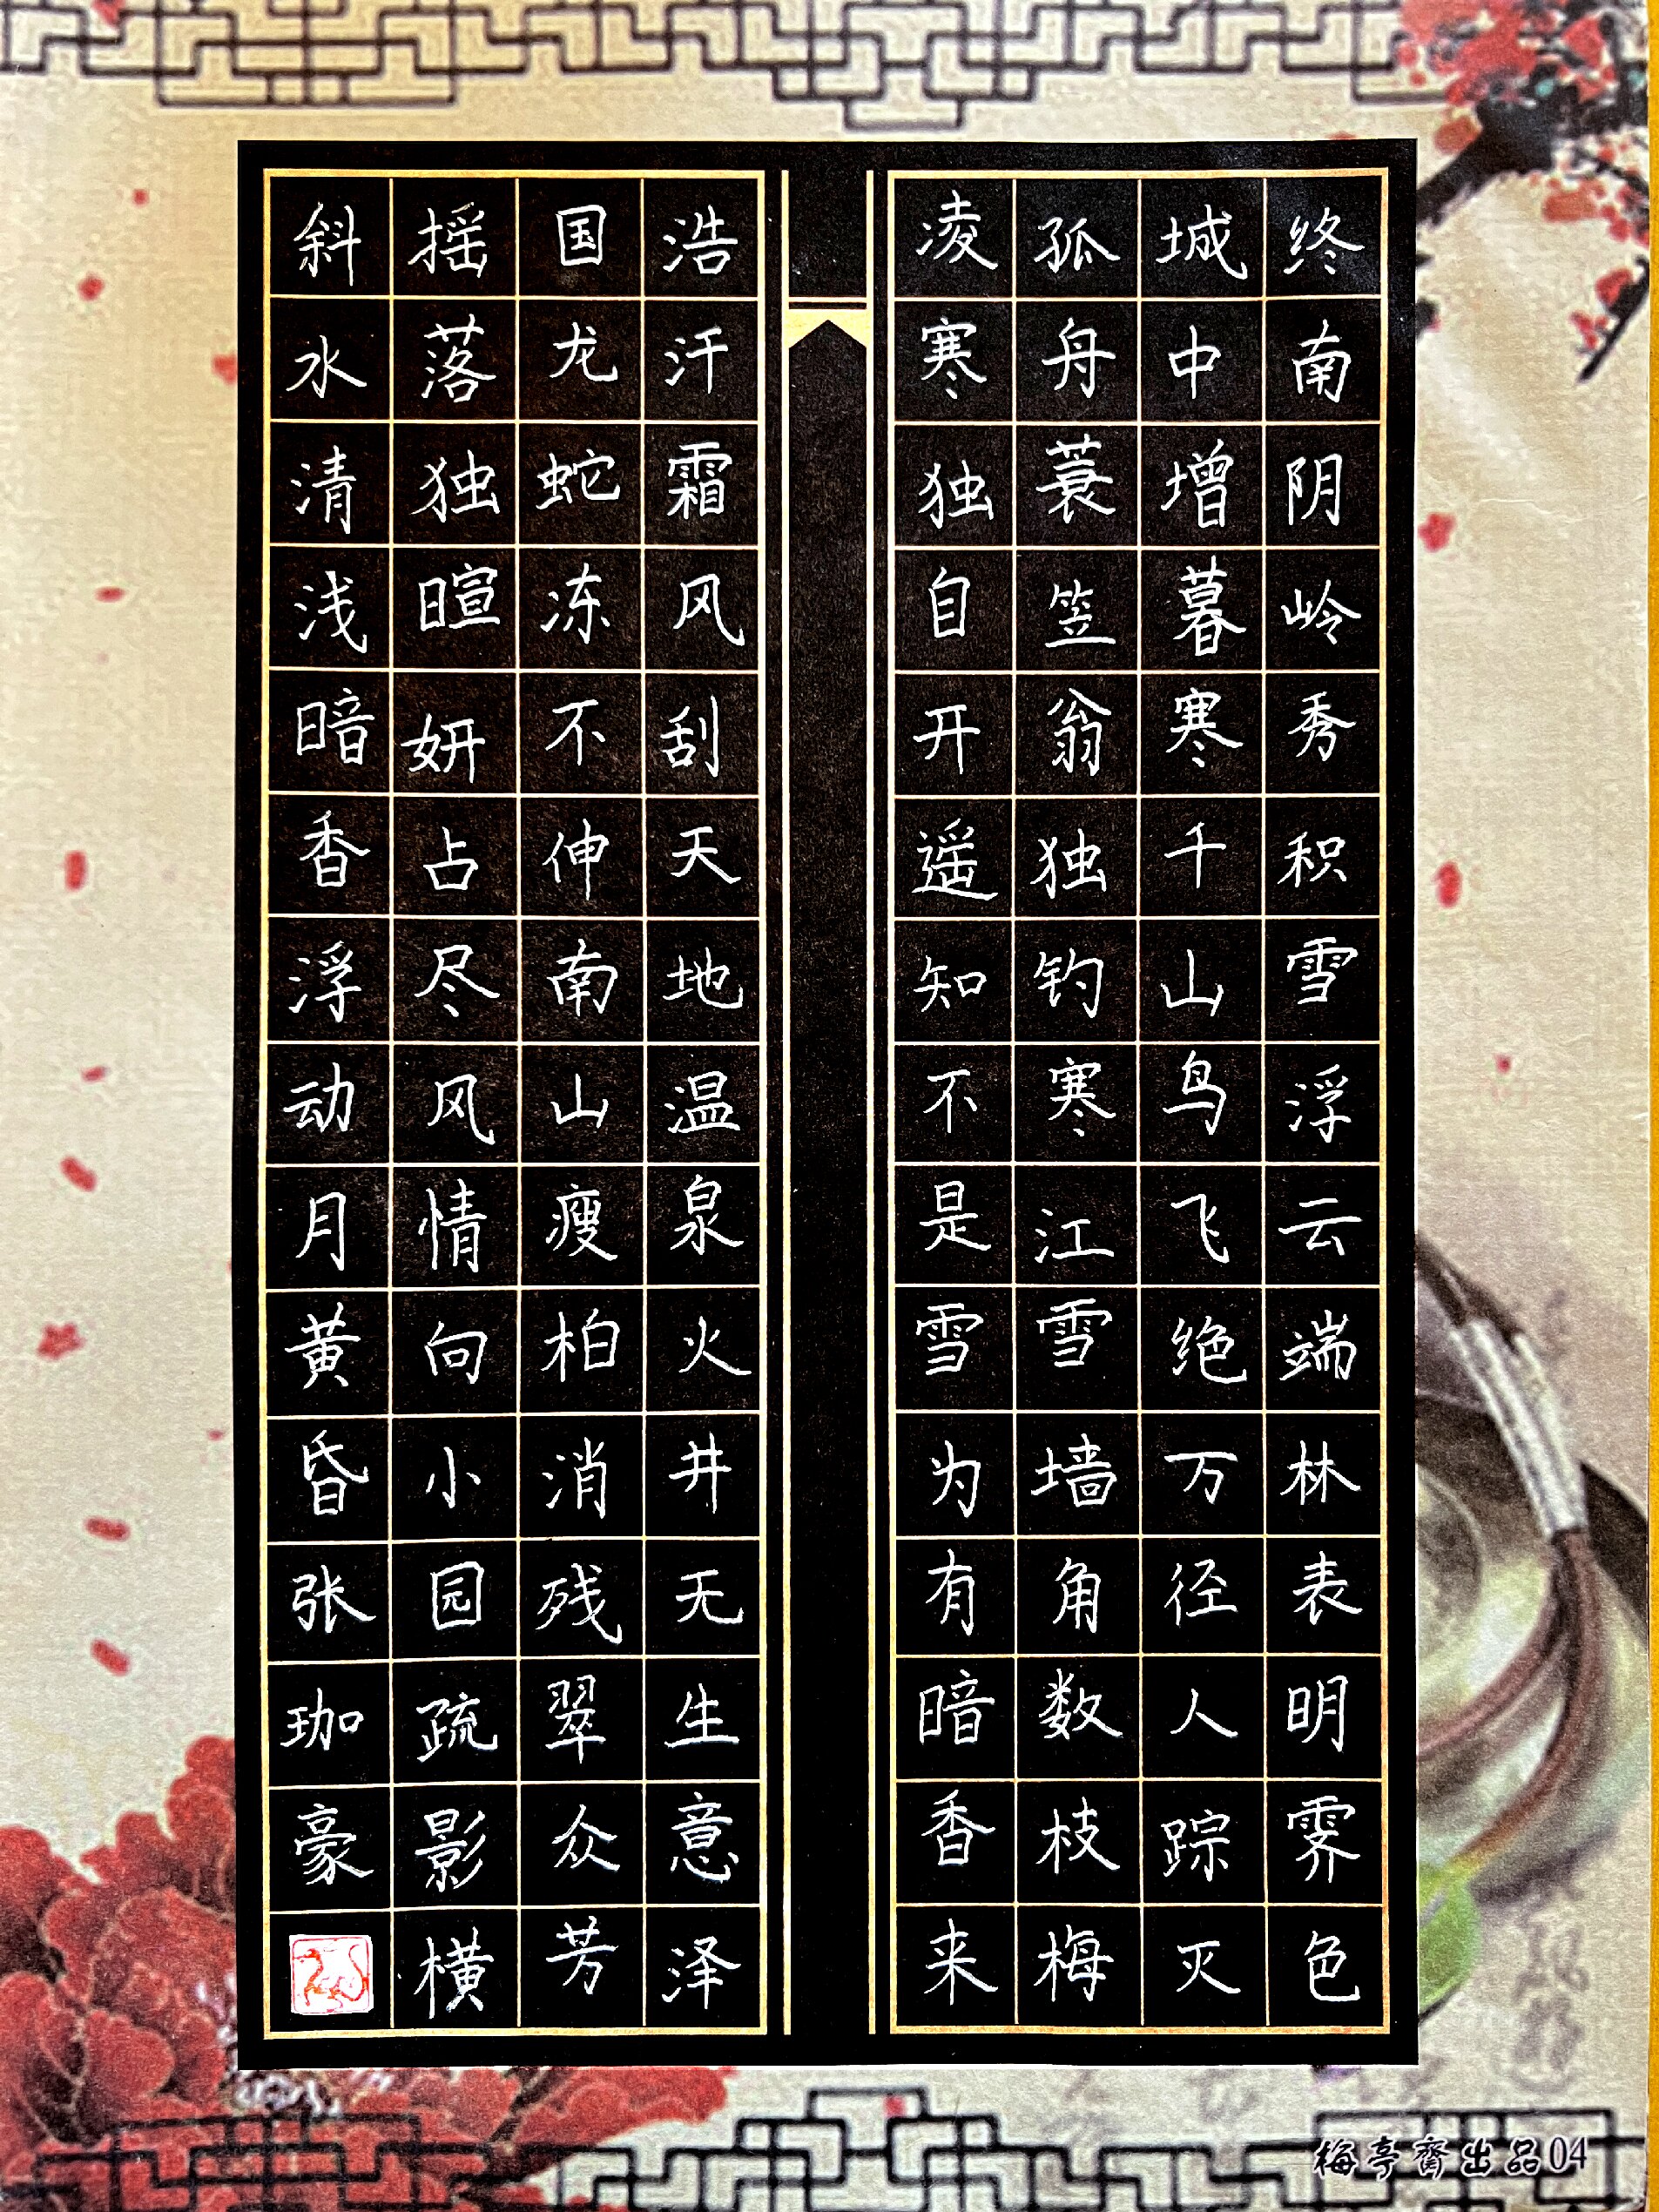 终南阴岭秀积雪浮云端林表明霁色
城中增暮寒千山鸟飞绝万径人踪灭
孤舟蓑笠翁独钓寒江雪墙角数枝梅
凌寒独自开遥知不是雪为有暗香来
浩汗霜风刮天地温泉火井无生意泽
国龙蛇冻不伸南山瘦柏消残翠众芳
摇落独暄妍占尽风情向小园疏影横
斜水清浅暗香浮动月黄昏张珈豪
梅亭斋出品04